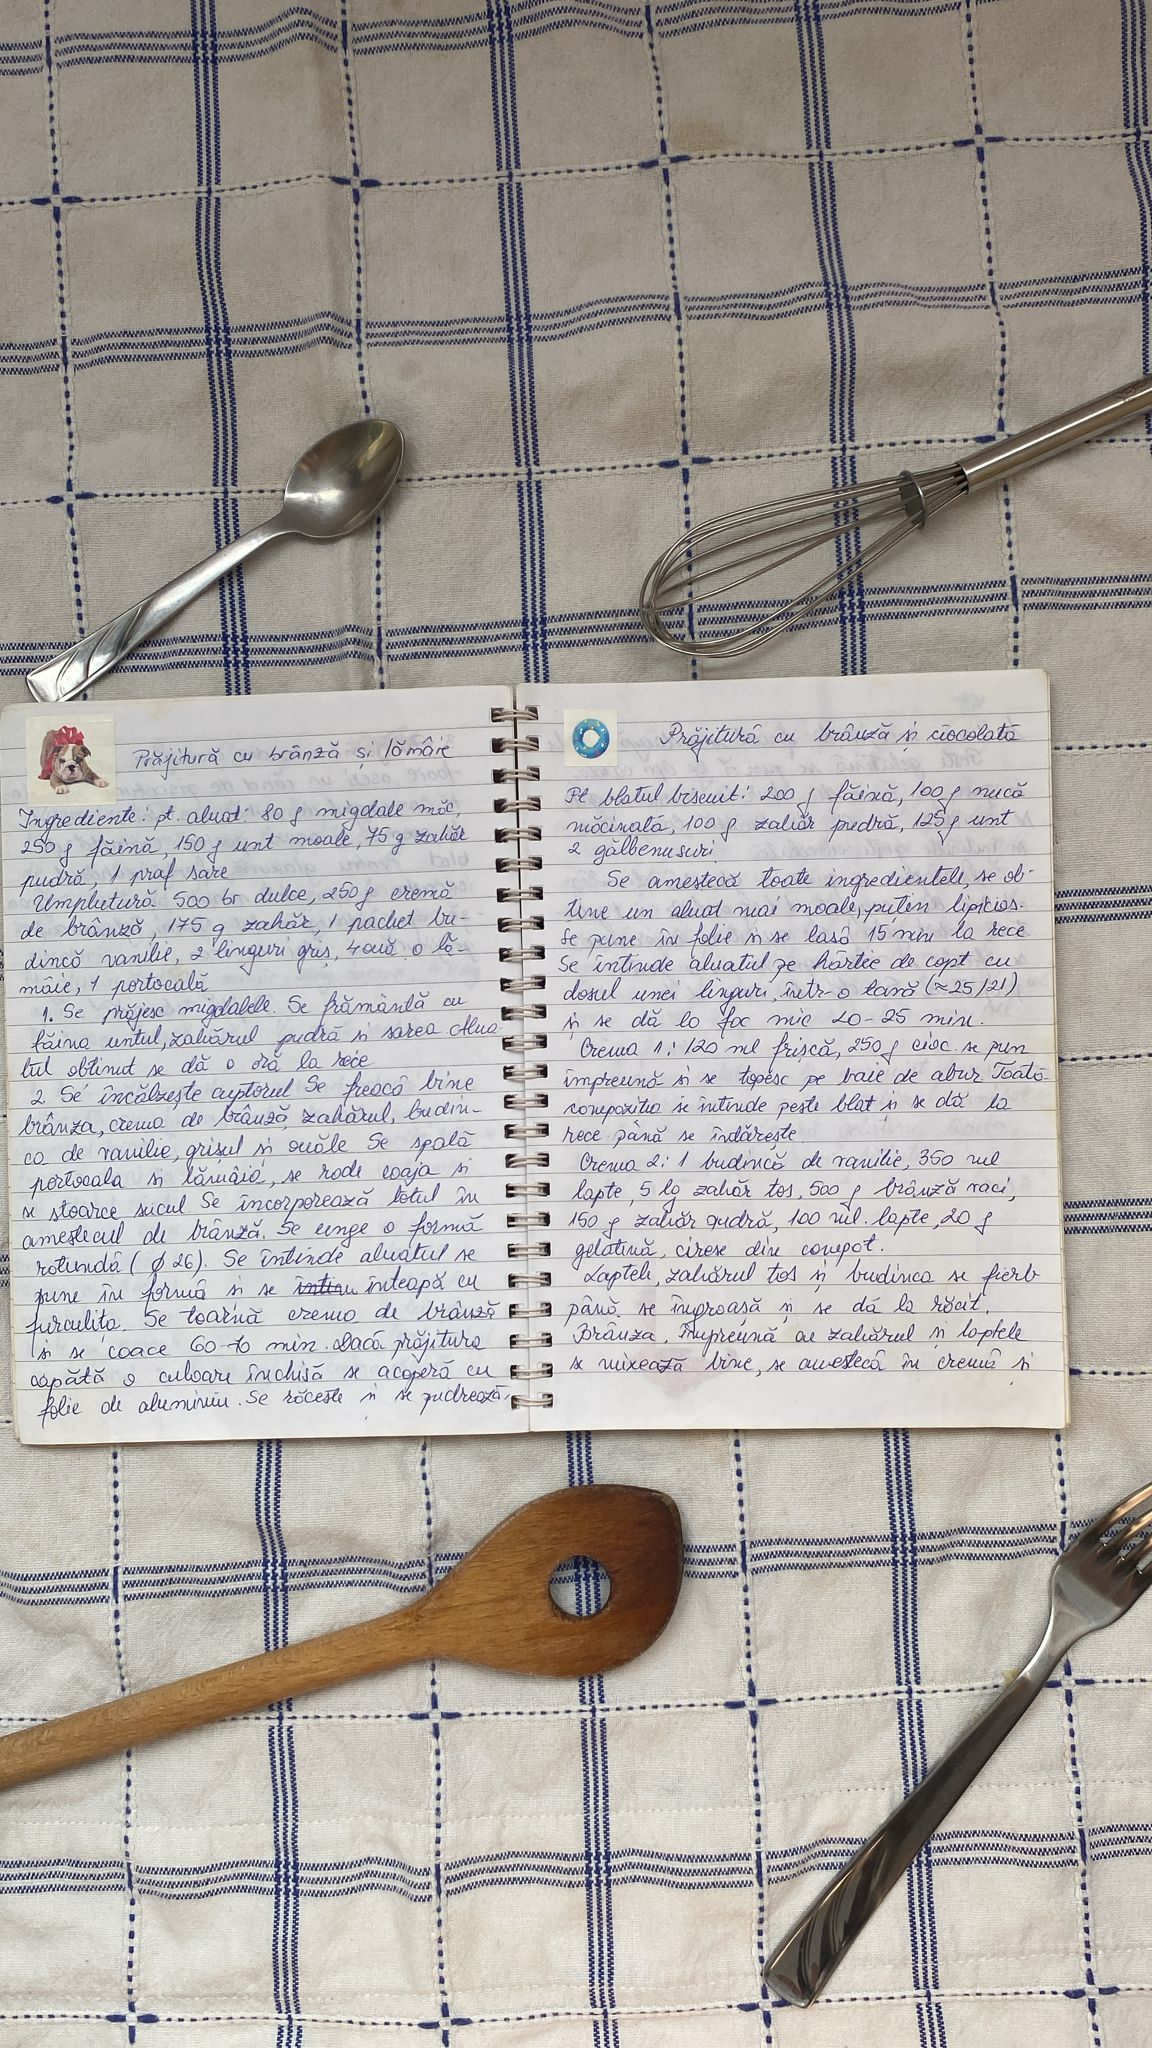 Prăjitură cu brânză și lămâie
Ingrediente: pt. aluat 80 g migdale măc,
250 g făină, 150 g unt moale, 75 g zahăr
pudră, 1 praf sare
Umplutură 500 br dulce, 250 g cremă
de brânză, 175 g zahăr, 1 pachet bu-
dincă vanilie, 2 linguri griș, 4 ouă o lă-
mâie, 1 portocală
1. Se prăjesc migdalele. Se frământă cu
făina untul, zahărul pudră si sarea Alua
tul obtinut se dă o oră la rece
2 Se încălzește cuptorul Se freacă bine
brânza, crema de brânză, zahărul, budin-
ca de vanilie, grișul si ouăle Se spală
portocala si lămâia, se rade coaja si
se stoarce sucul Se încorporează totul în
amestecul de brânză. Se unge o formă
rotundă (ø 26). Se întinde aluatul se
pune în formă si se înteapă cu
furculița. Se toarnă crema de brânză
si se coace 60-70 min. Dacă prăjitura
capătă o culoare închisă se acoperă cu
folie de aluminiu. Se răcește si se pudrează.
Prăjitură cu brânză și ciocolată
Pt blatul biscuit: 200 g făină, 100 g nucă
măcinată, 100 g zahăr pudră, 125 g unt
2 gălbenușuri
Se amestecă toate ingredientele, se ob-
tine un aluat mai moale, puțin lipicios.
Se pune în folie si se lasă 15 min la rece
Se întinde aluatul pe hârtie de copt cu
dosul unei linguri, într-o tavă (≈25/21)
si se dă la foc mic 20-25 min.
Crema 1: 120 ml frișcă, 250 g cioc. se pun
împreună si se topesc pe baie de abur Toată
compoziția se întinde peste blat si se dă la
rece până se întărește
Crema 2: 1 budincă de vanilie, 350 ml
lapte, 5 lg zahăr tos, 500 g brânză vaci,
150 g zahăr pudră, 100 ml. lapte, 20 g
gelatină, cirese din compot.
Laptele, zahărul tos și budinca se fierb
până se îngroașă și se dă la răcit.
Brânza, împreună cu zahărul și laptele
se mixează bine, se amestecă în cremă si